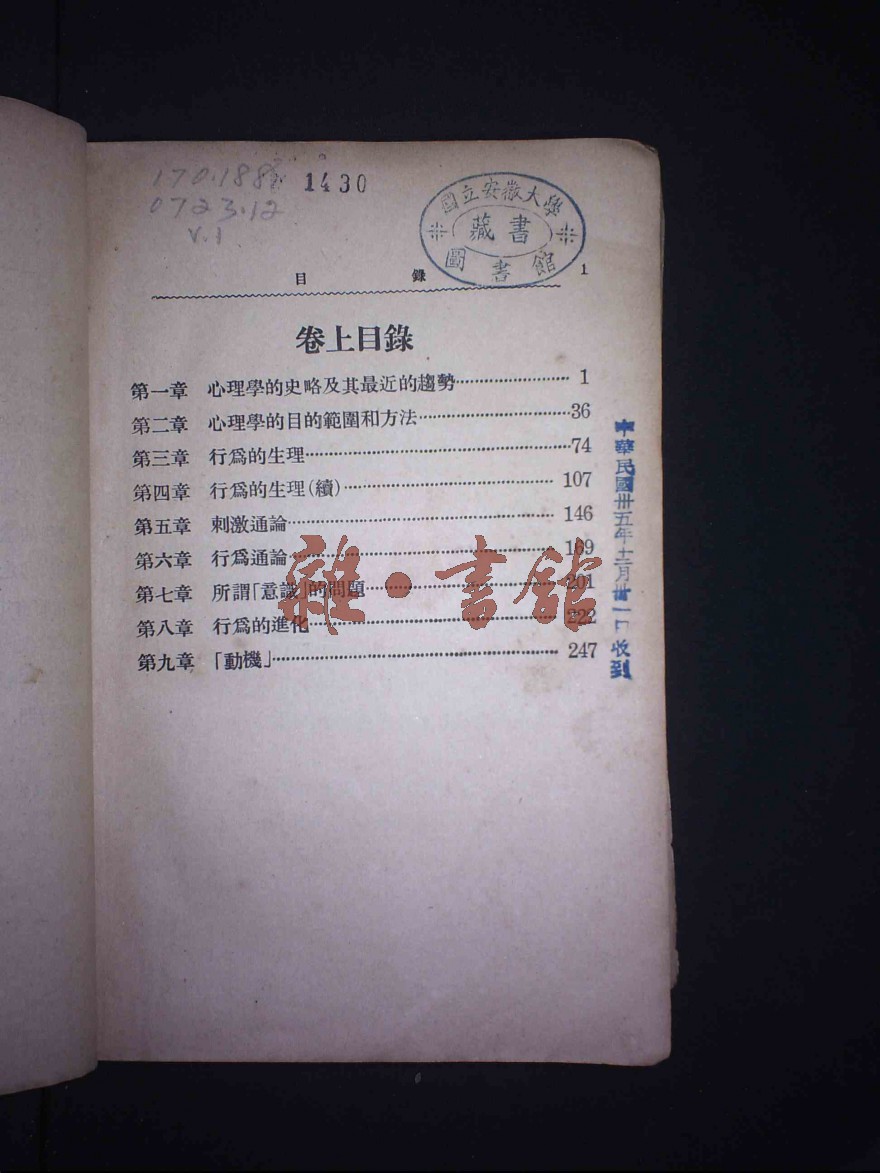 170.188
1430
0723.12
v.1
國立安徽大學
藏書
圖書館
目 錄 1
卷上目錄
第一章 心理學的史略及其最近的趨勢 1
第二章 心理學的目的範圍和方法 36
第三章 行爲的生理 74
第四章 行爲的生理(續) 107
第五章 刺激通論 146
第六章 行爲通論 169
第七章 所謂「意識」的問題 201
第八章 行爲的進化 222
第九章 「動機」 247
中華民國卅五年十二月卅一日收到
雜·書館